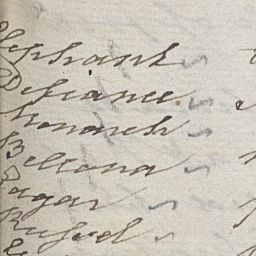 Elephant
Defiance
Monarch
Bellona
Russel